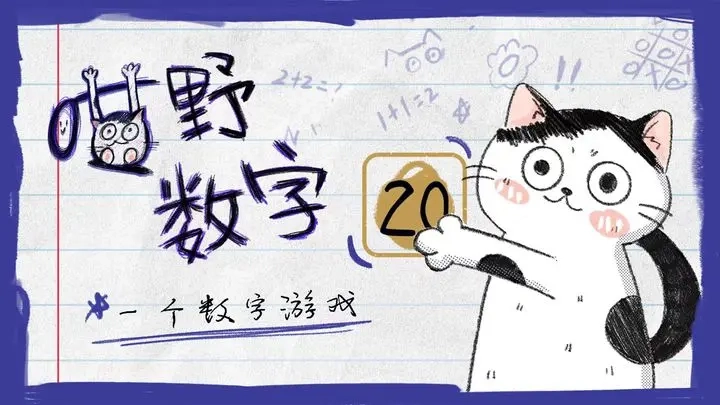 喵野
数字
20
一个数字游戏
2+2=
1+1=2
!!